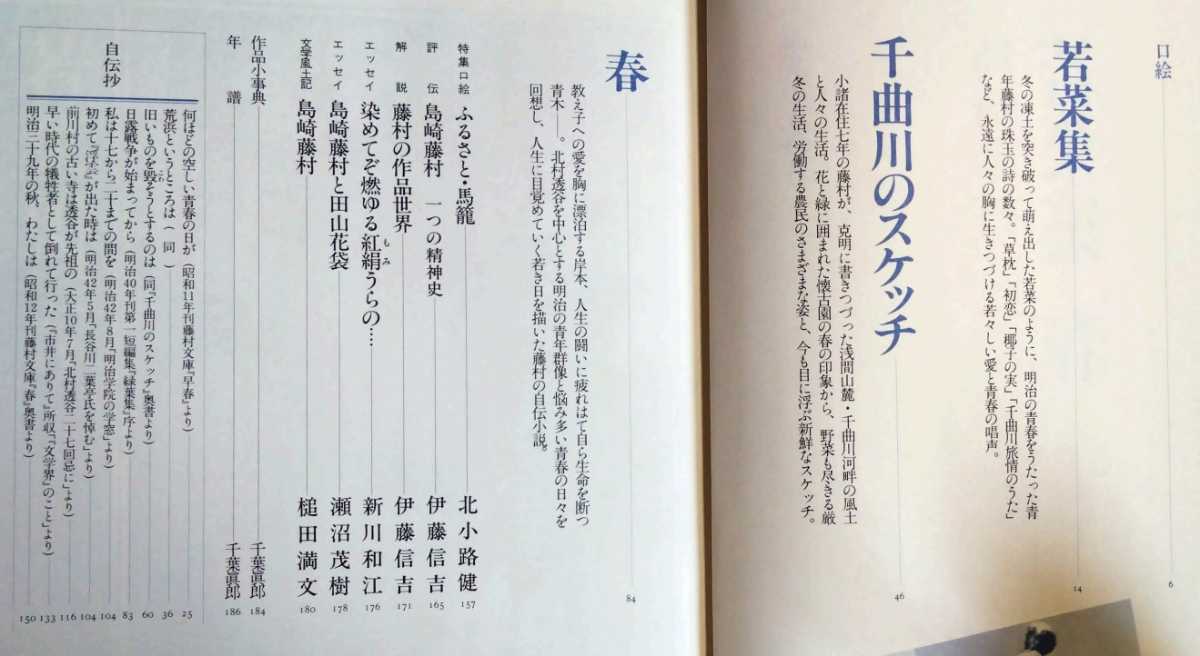 口絵
6
若菜集
冬の凍土を突き破って萌え出した若菜のように、明治の青春をうたった青
年藤村の珠玉の詩の数々。「草枕」「初恋」「椰子の実」「千曲川旅情のうた」
など、永遠に人々の胸に生きつづける若々しい愛と青春の唱声。
14
千曲川のスケッチ
小諸在住七年の藤村が、克明に書きつづった浅間山麓・千曲川河畔の風土
と人々の生活。花と緑に囲まれた懐古園の春の印象から、野菜も尽きる厳
冬の生活、労働する農民のさまざまな姿と、今も目に浮ぶ新鮮なスケッチ。
46
春
教え子への愛を胸に漂泊する岸本、人生の闘いに疲れはて自ら生命を断つ
青木――。北村透谷を中心とする明治の青年群像と悩み多い青春の日々を
回想し、人生に目覚めていく若き日を描いた藤村の自伝小説。
84
特集口絵 ふるさと・馬籠 北小路健 157
評伝 島崎藤村 一つの精神史 伊藤信吉 165
解説 藤村の作品世界 伊藤信吉 171
エッセイ 染めてぞ燃ゆる紅絹うらの…… 新川和江 176
もみ
エッセイ 島崎藤村と田山花袋 瀬沼茂樹 178
文学風土記 島崎藤村 槌田満文 180
作品小事典 千葉眞郎 184
年譜 千葉眞郎 186
自伝抄
何ほどの空しい青春の日が(昭和11年刊藤村文庫『早春』より) 25
荒浜というところは(同) 36
旧いものを毀そうとするのは(同『千曲川のスケッチ』奥書より) 60
こわ
日露戦争が始まってから(明治40年刊第一短編集『緑葉集』序より) 83
私は十七から二十までの間を(明治42年8月「明治学院の学窓」より) 104
初めて『浮雲』が出た時は(明治42年5月「長谷川二葉亭氏を悼む」より) 104
前川村の古い寺は透谷が先祖の(大正10年7月「北村透谷二十七回忌に」より) 116
早い時代の犠牲者として倒れて行った(『市井にありて』所収「『文学界』のこと」より) 133
明治二十九年の秋、わたしは(昭和12年刊藤村文庫『春』奥書より) 150